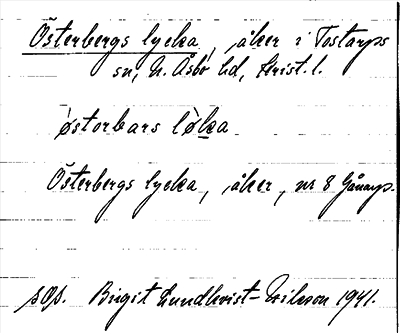 Österbergs lycka, åker i Tostarps
sn, N. Åsbo hd, Krist. l.
`østorbars l`øka
Österbergs lycka, åker, nr 8 Gånarp.
sOp. Birgit Lundkvist-Nilsson 1941.